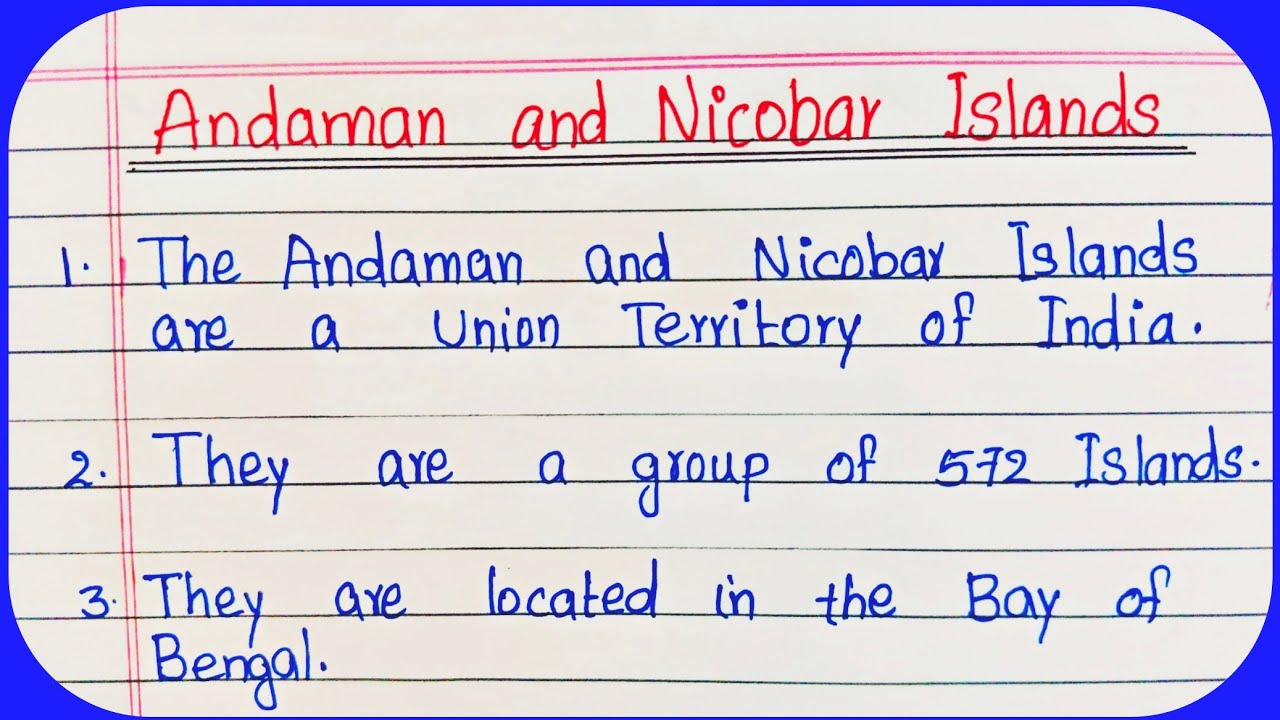 Andaman and Nicobar Islands
1. The Andaman and Nicobar Islands
are a Union Territory of India.
2. They are a group of 572 Islands.
3. They are located in the Bay of
Bengal.